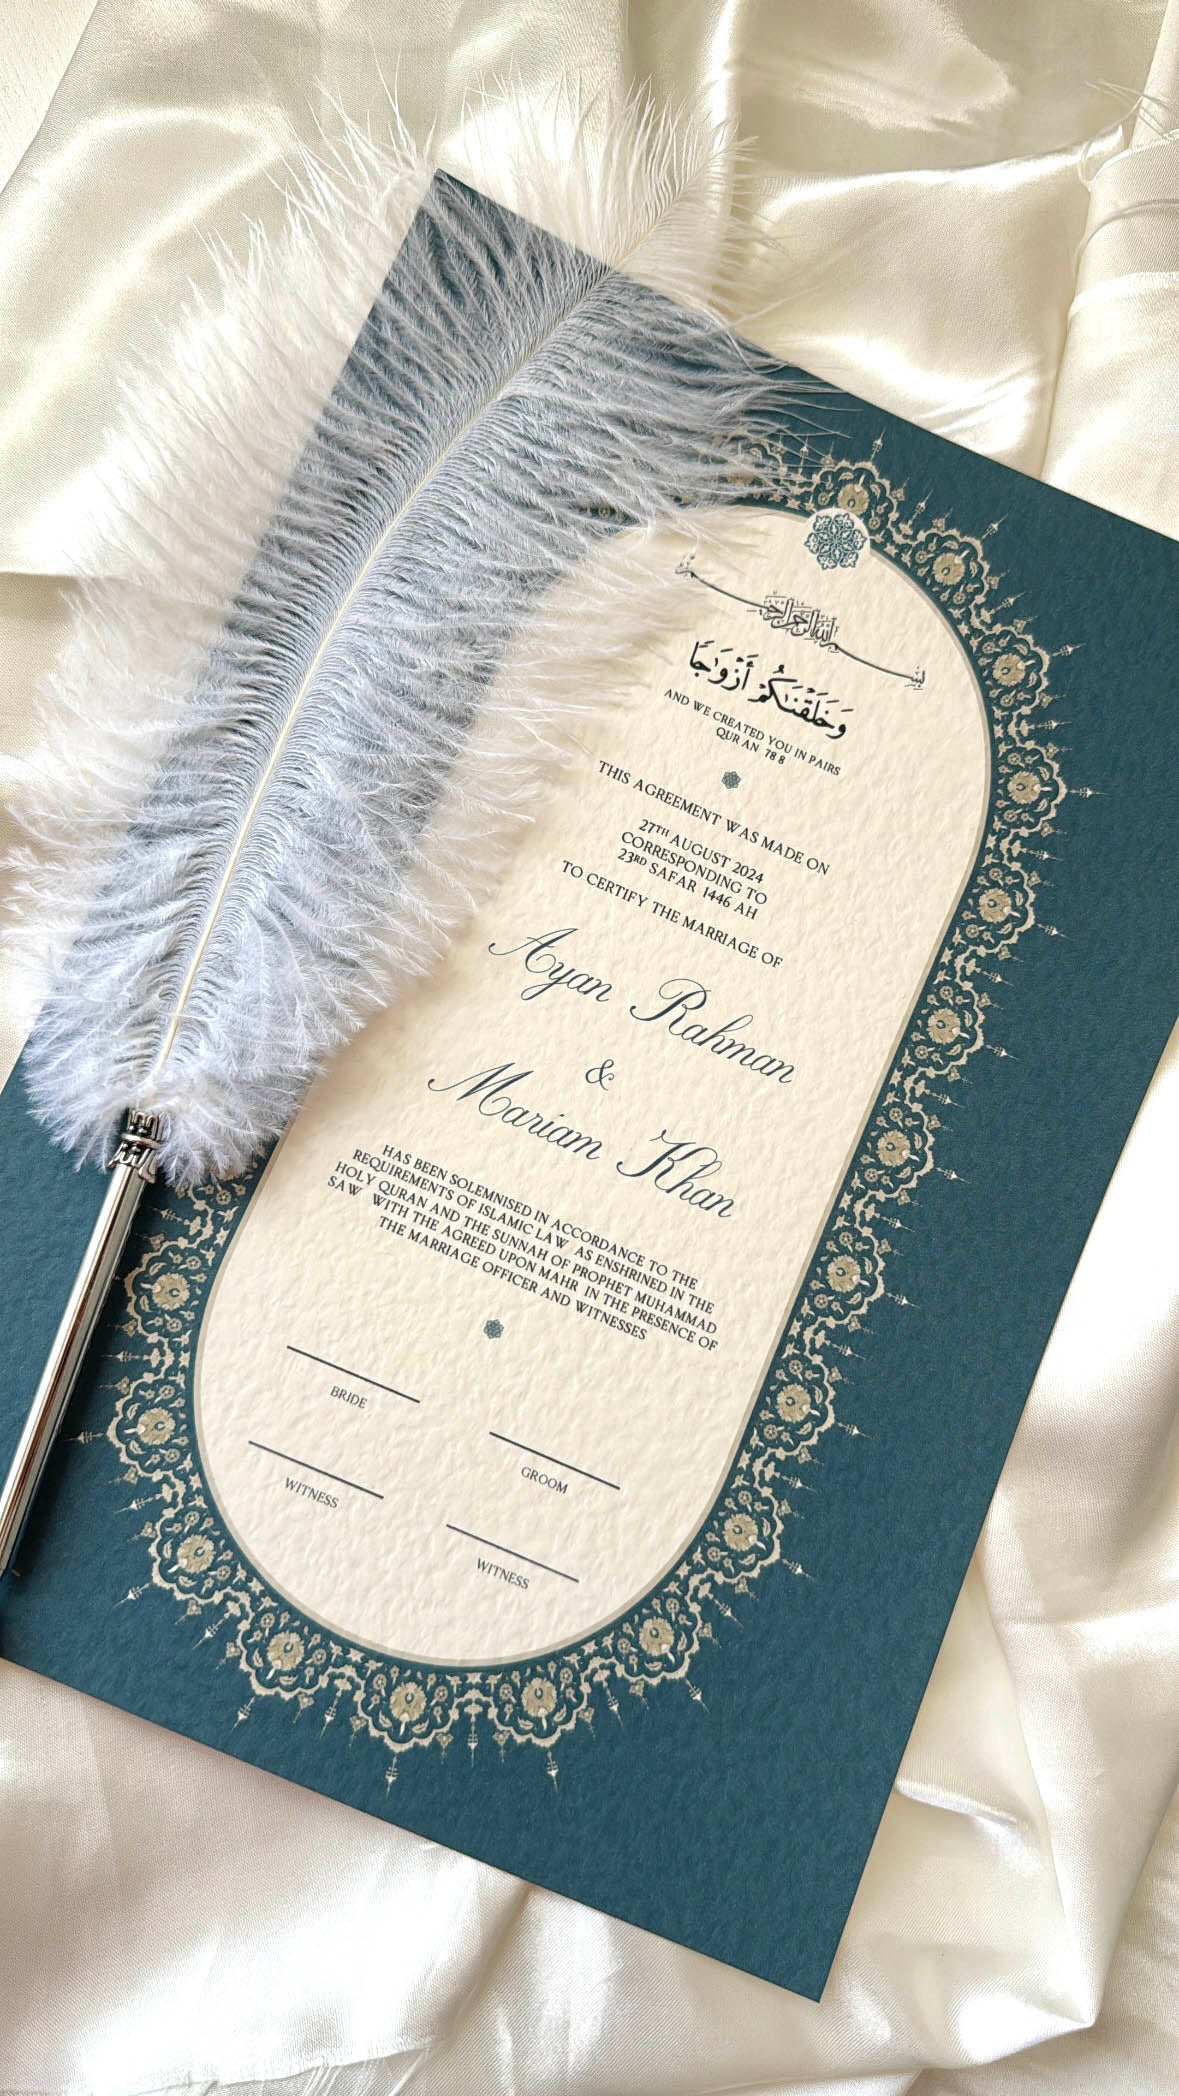 بسم الله الرحمن الرحيم
وَخَلَقْنَـٰكُمْ أَزْوَٰجًا
AND WE CREATED YOU IN PAIRS
QUR AN 78 8
THIS AGREEMENT WAS MADE ON
27TH AUGUST 2024
CORRESPONDING TO
23RD SAFAR 1446 AH
TO CERTIFY THE MARRIAGE OF
Ayan Rahman
&
Mariam Khan
HAS BEEN SOLEMNISED IN ACCORDANCE TO THE
REQUIREMENTS OF ISLAMIC LAW AS ENSHRINED IN THE
HOLY QURAN AND THE SUNNAH OF PROPHET MUHAMMAD
SAW WITH THE AGREED UPON MAHR IN THE PRESENCE OF
THE MARRIAGE OFFICER AND WITNESSES
BRIDE
GROOM
WITNESS
WITNESS